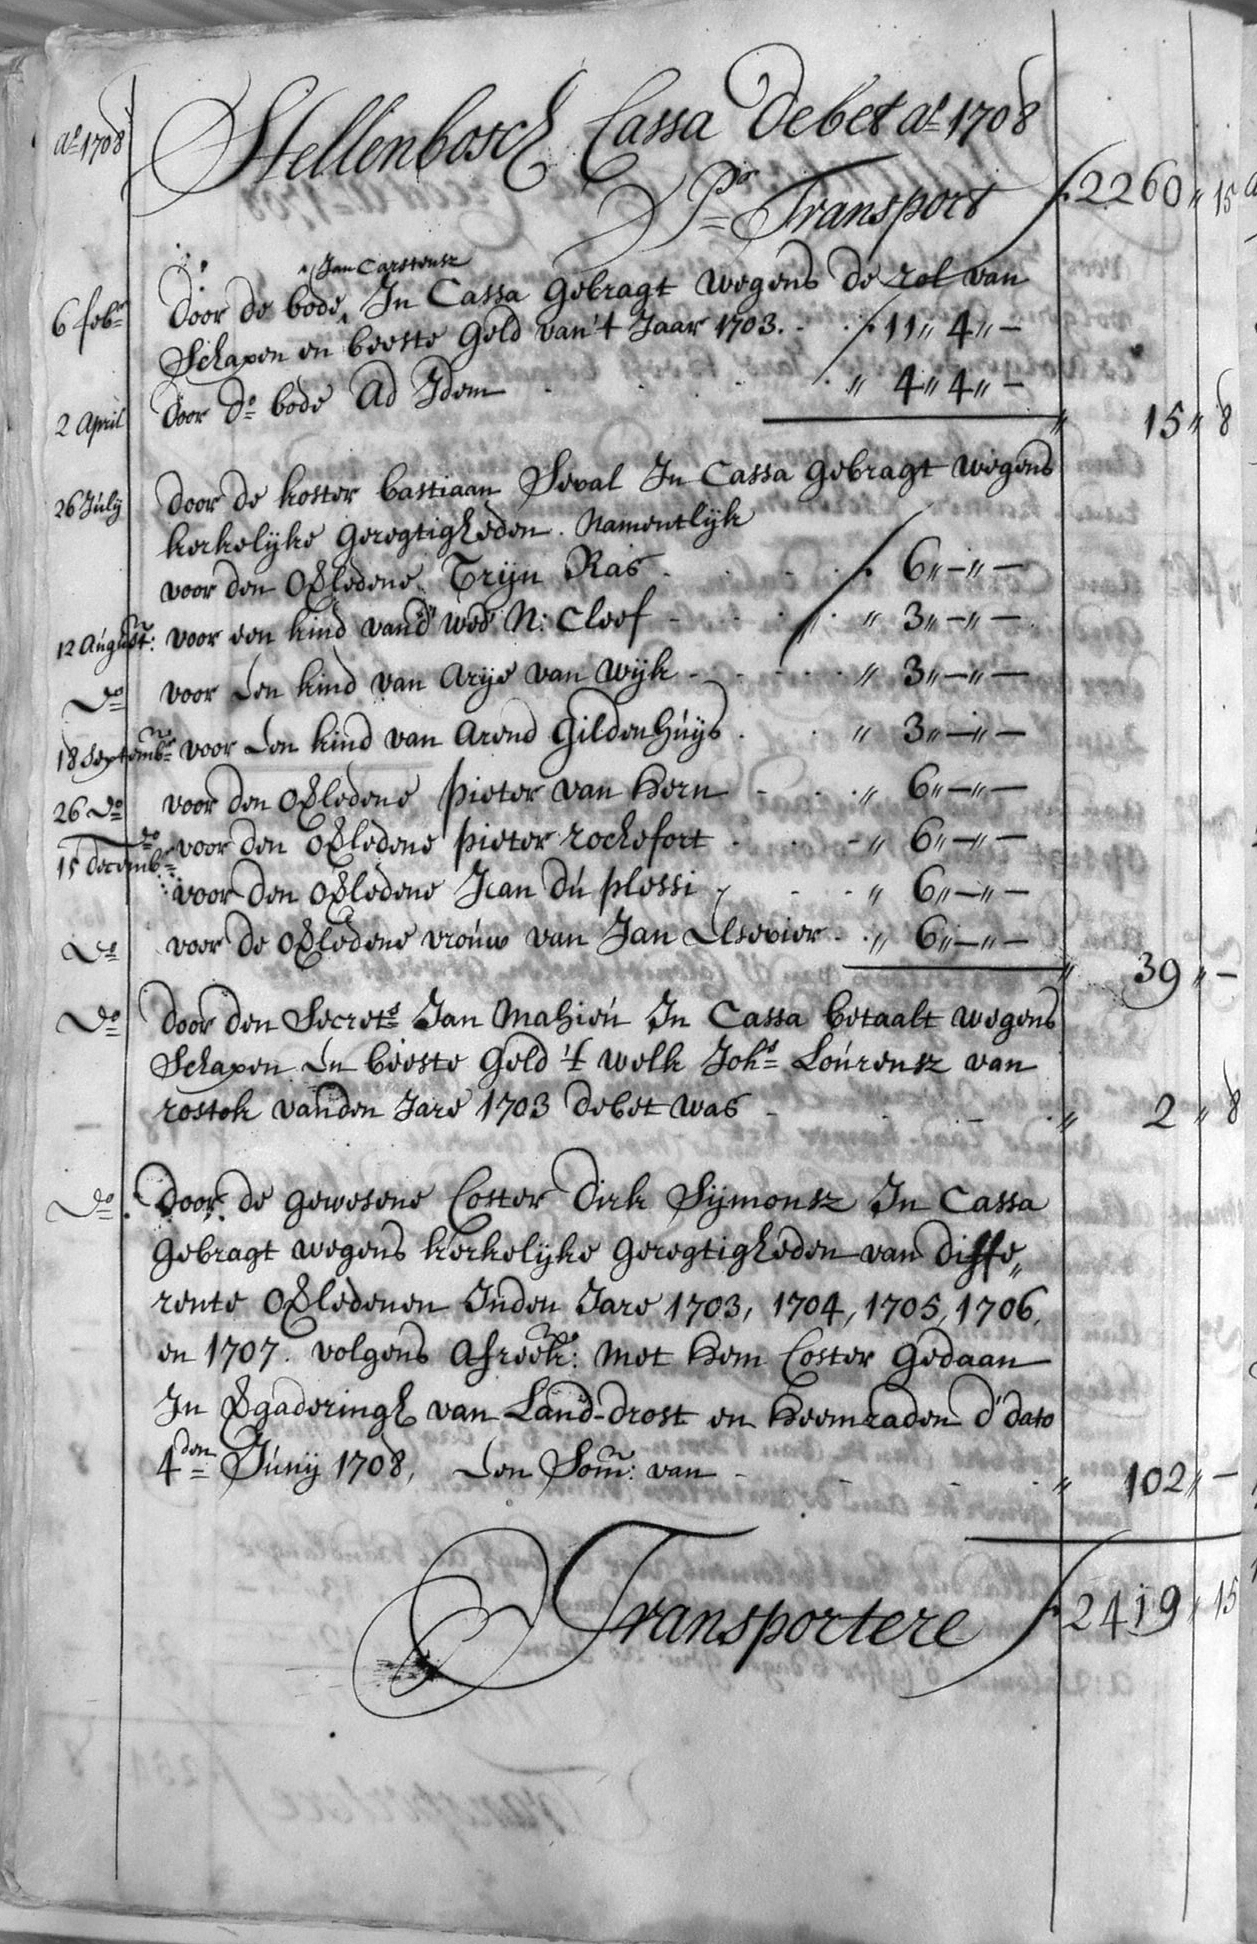 Aº 1708 Stellenbosch Cassa Debet aº 1708
Pr Transport ƒ 2260 „ 15
^ Jan Carstensz
6 febr Door de bode ^ In Cassa gebragt wegens de rol van
Schapen en beeste geld van 't Jaar 1703. - ƒ 11„ 4„ —
2 April Door do bode Ad Idem „ 4„ 4„ — „ 15 „ 8
26 Julij door de koster bastiaan Seval In Cassa gebragt wegens
kerkelijke geregtigheden. Namentlijk
voor den overledene Trijn Ras ƒ 6„—„—
12 August: voor een kind vand' wed N: Cleef „ 3„—„—
Do voor Een kind van Arije van Wijk „ 3„—„—
18 Septembr voor Een kind van Arend Gildenhuijs „ 3„—„—
26 Do voor den overledene Pieter van Hern „ 6„—„—
Do voor den overledene Pieter rochefort „ 6„—„—
15 decembr: voor den overledene Jean du plessi „ 6„—„—
Do voor de overledene vrouw van Jan Elsevier „ 6„—„— „ 39 „ —
Do door den Secrets Jan Mahieu In Cassa betaalt wegens
Schapen En beeste geld 't welk Johs Lourensz van
rostok vanden Jare 1703 debet was „ 2 „ 8
Do door de gewesene Coster Dirk Sijmonsz In Cassa
gebragt wegens kerkelijke geregtigheden van diffe„
rente overledenen Inden Jare 1703, 1704, 1705, 1706,
en 1707. volgens afreek: met hem Coster gedaan
In vergaderingh van Land-drost en Heemraden d'dato
4den Junij 1708, Een Som: van „ 102 „ —
Transportere ƒ 2419 „ 15